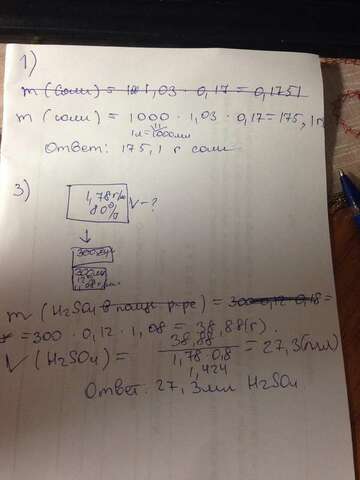 1)
m (соли) = 1000 · 1,03 · 0,17 = 175,1 г
1л = 1000мл
Ответ: 175,1 г соли
3)
1,78 г/мл
80%
V - ?
300мл
300мл
12%
1,08 г/мл
m (H₂SO₄ в получ. р-ре) = 300·0,12·0,18 =
= 300 · 0,12 · 1,08 = 38,88 (г).
V (H₂SO₄) = 38,88 / 1,78 · 0,8 = 27,3 (мл)
1,424
Ответ: 27,3 мл H₂SO₄